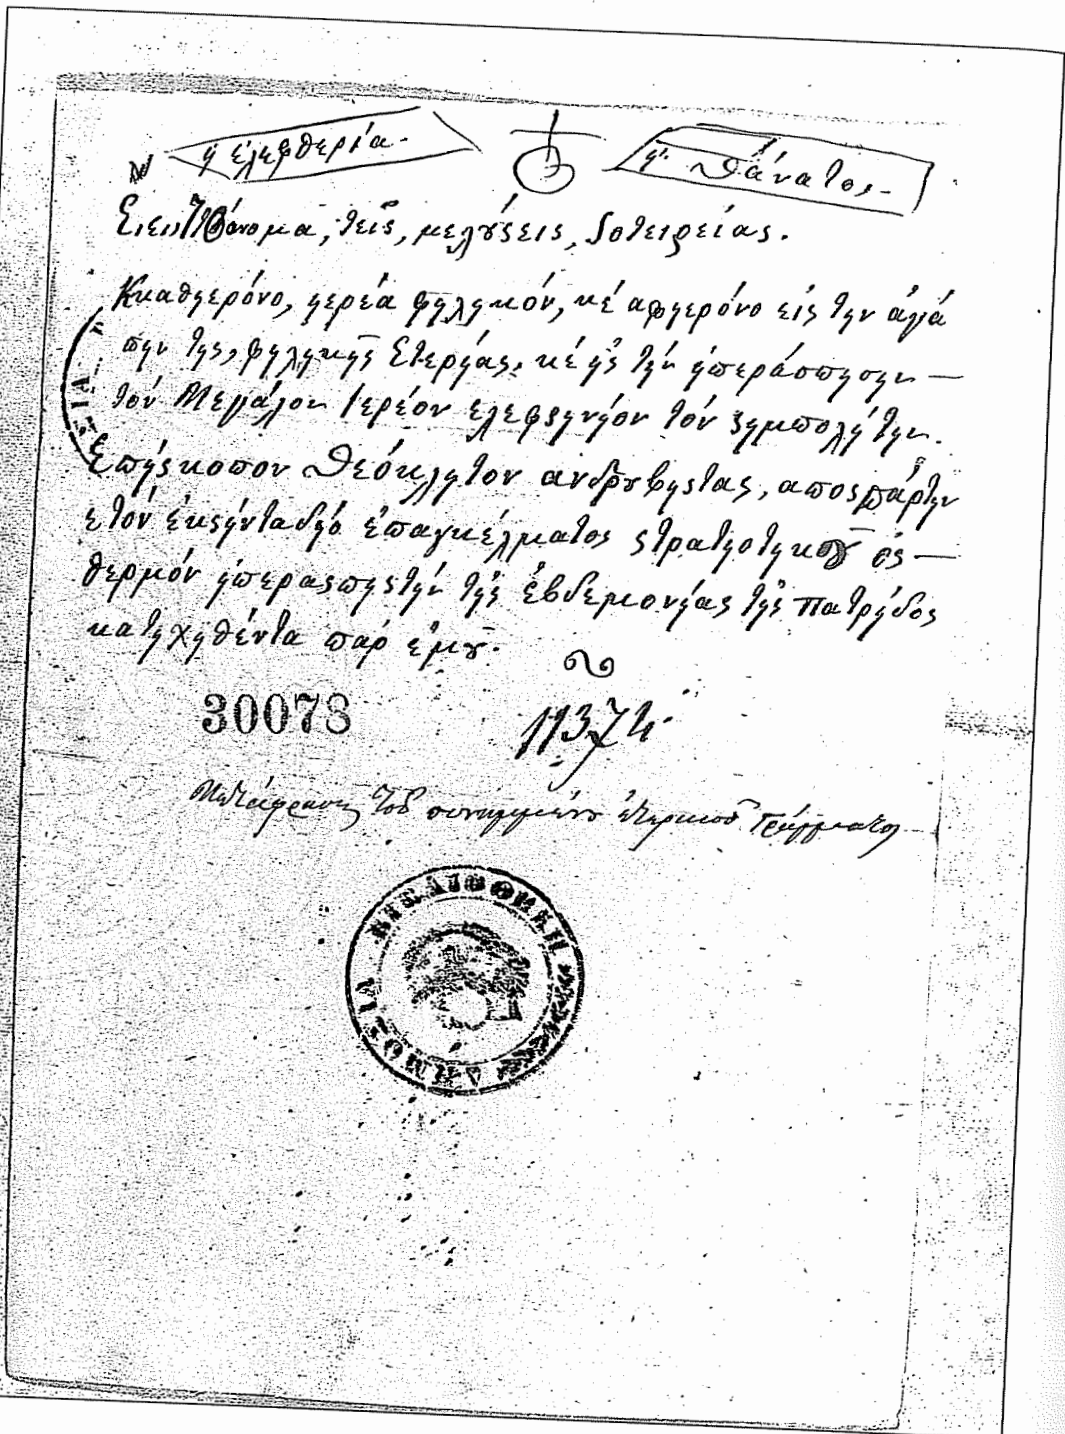 ἡ ἐλεφθερία - ἤ θάνατος -
θάνομα, τεῖς, μελούσεις, σοτειρείας.
Κκαθηερόνο, ηερέα φηληκόν, κέ αφηερόνο εἰς την ἀγά
πην της, φηληκῆς Ετερήας, κέ ῆς τήν ἡπεράσπησην —
τόν Μεγγάλον Ιερέον ελεφσηνήον τόν σημπολήτην.
Επήσκοπον Θεόκλητον ανδρουβηστας, αποσπάρτην
ετόν ἐκσήνταδηό ἐπαγκέλματος στρατηοτηκοῦ ὁς —
θερμόν ηπερασπηστήν τῆς ἐβδεμονήας τῆς πατρήδος
κατηχηθέντα παρ ἐμοῦ.
30078
11374
Μετάφρασις τοῦ συνημμένου ἑτερικοῦ Γράμματος
ΔΗΜΟΣΙΑ ΒΙΒΛΙΟΘΗΚΗ
ΣΙΑ